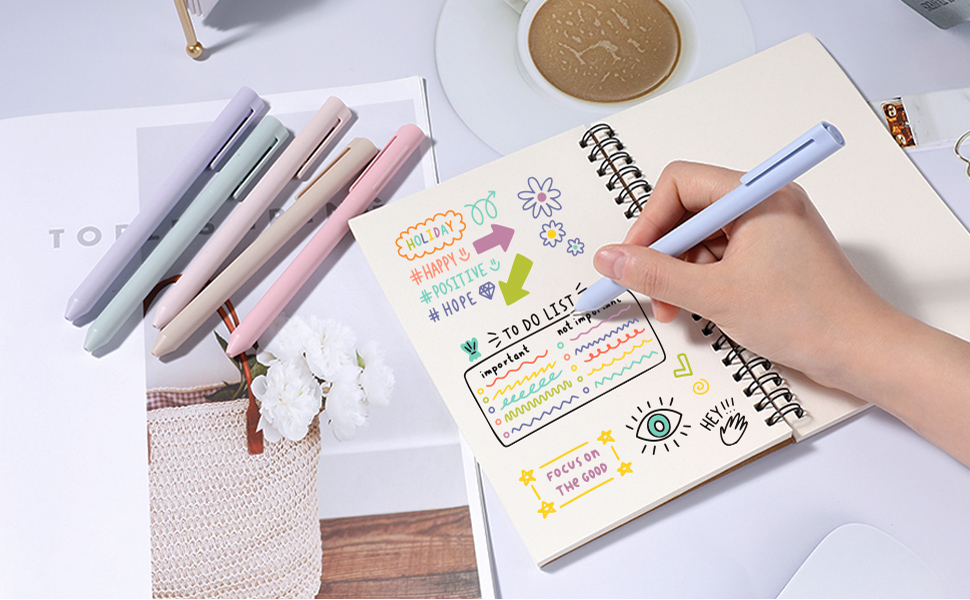 HOLIDAY
#HAPPY
#POSITIVE
#HOPE
TO DO LIST
important
not important
HEY!!!
FOCUS ON
THE GOOD